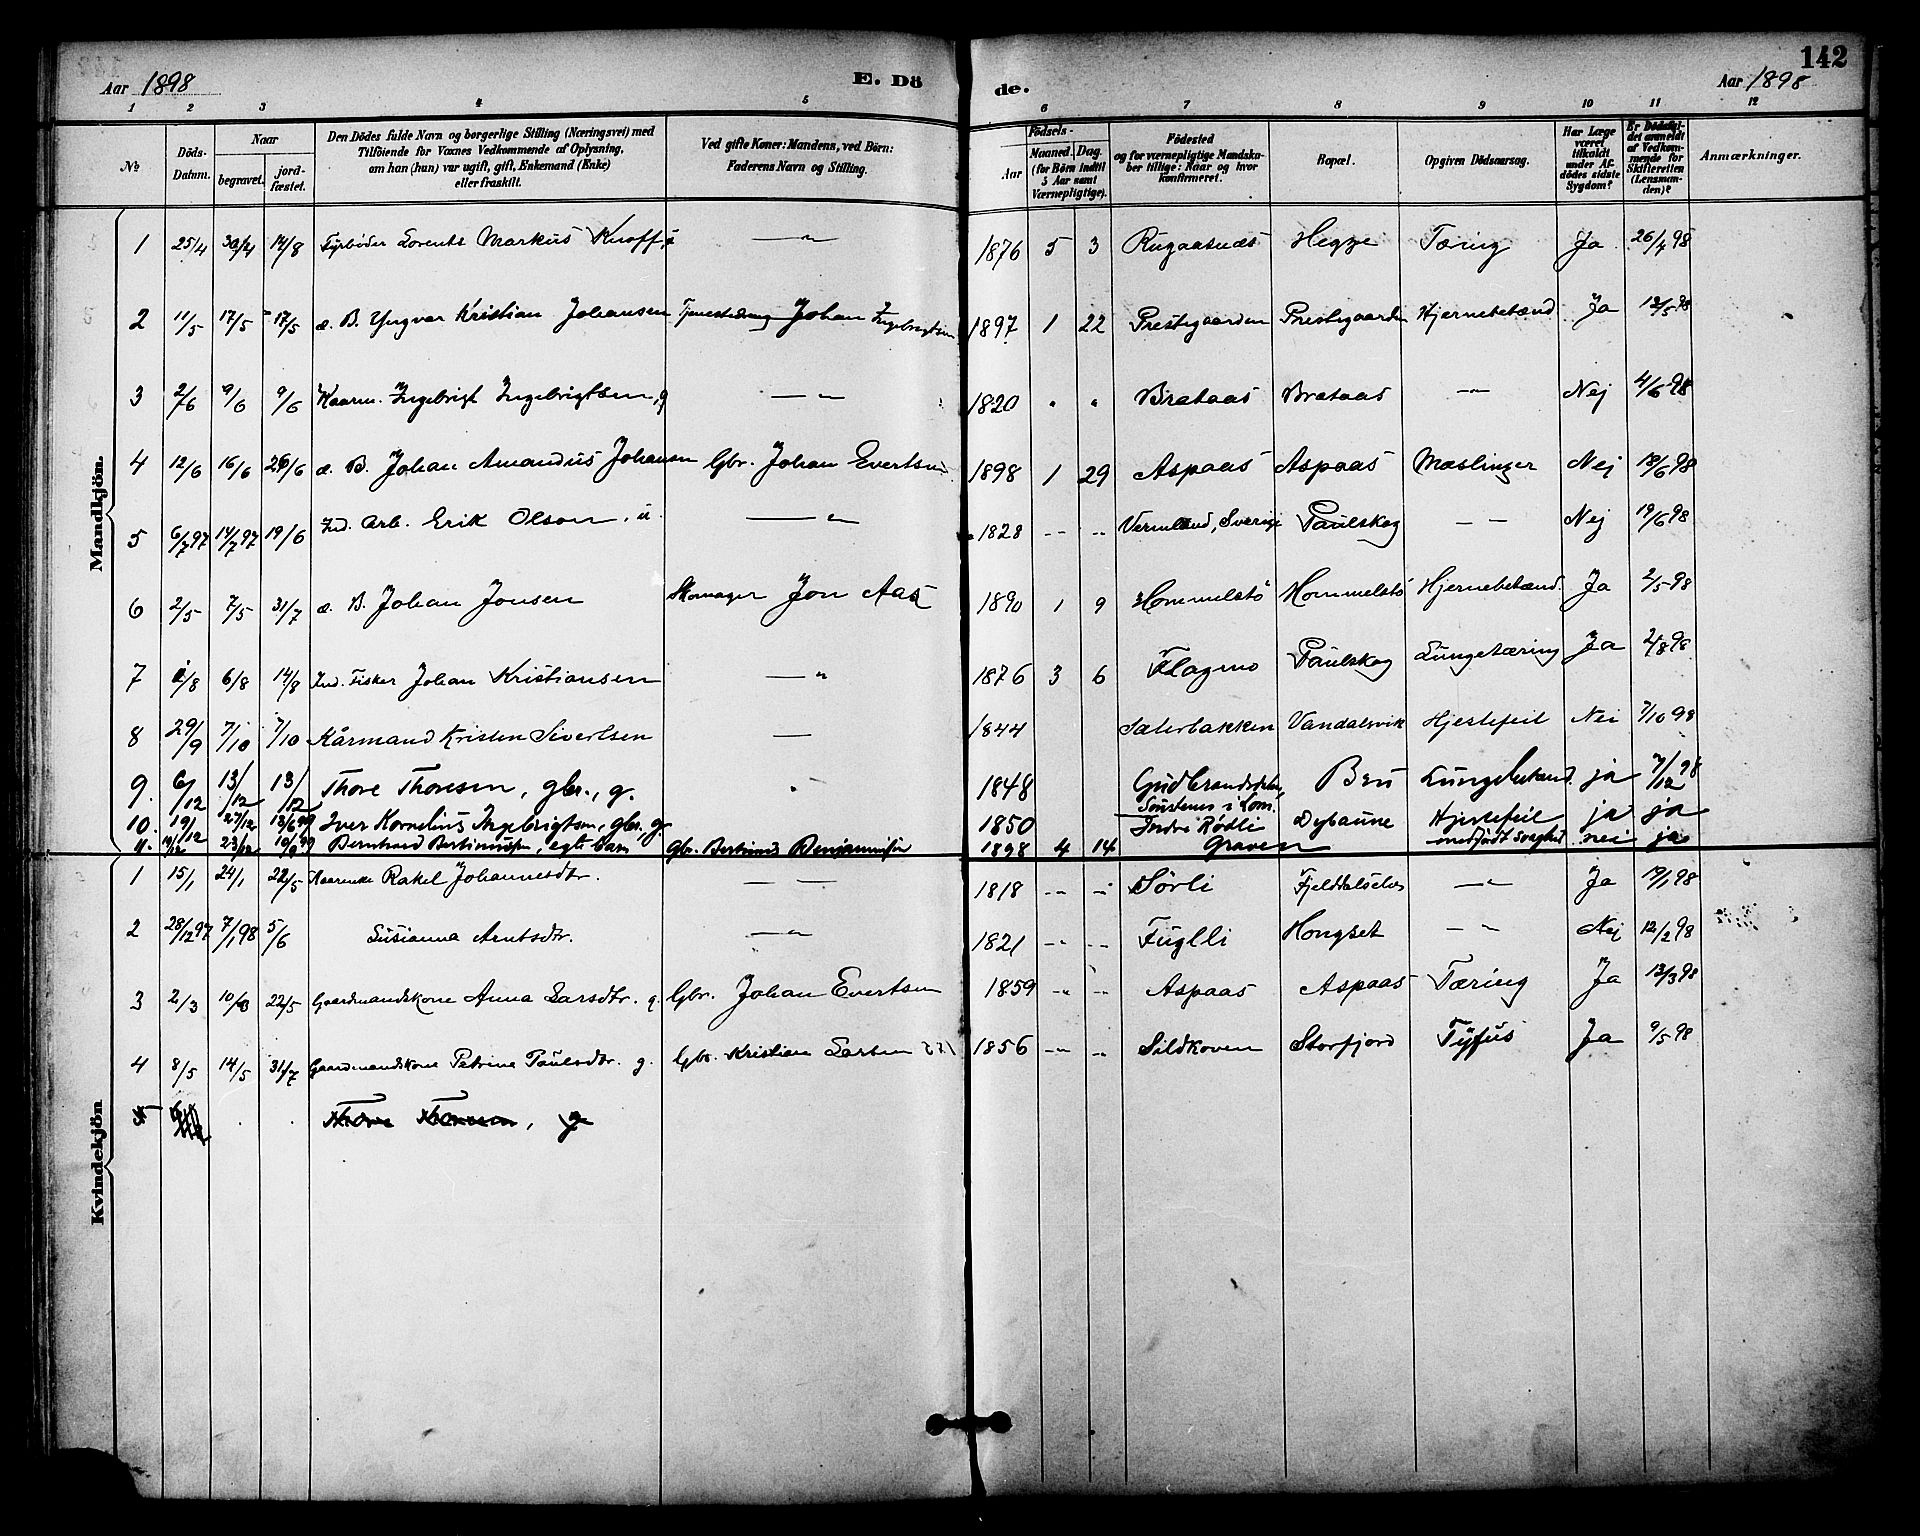 142
Aar 1898 E. Dö de. Aar 1898
1 2 3 4 5 6 7 8 9 10 11 12
No Döds-Datum. Naar begravet. jord-fæstet. Den Dödes fulde Navn og borgerlige Stilling (Næringsvei) med Tilföiende for Voxnes Vedkommende af Oplysning, om han (hun) var ugift, gift, Enkemand (Enke) eller fraskilt. Ved gifte Koner: Mandens, ved Börn: Faderens Navn og Stilling. Födsels- Aar Maaned. Dag. (for Börn indtil 5 Aar samt Værnepligtige). Födested og for værnepligtige Mandskaber tillige: Naar og hvor konfirmeret. Bopæl. Opgiven Dödsaarsag. Har Læge været tilkaldt under Afdödes sidste Sygdom? Er Dödsfaldet anmeldt af Vedkommende for Skifteretten (Lensmanden)? Anmærkninger.
Mandkjön.
1 25/4 30/4 14/8 Fyrböder Lorents Markus Knoff, u — " — 1876 5 3 Rugaasnæs Hegge Tæring Ja 26/4 98
2 11/5 17/5 17/5 æ. B. Yngvar Kristian Johansen Johan Ingebrigtsen 1897 1 22 Prestegaarden Prestegaarden Hjernebetænd Ja 12/5 98
3 2/6 9/6 9/6 Kaarm. Ingebrigt Ingebrigtsen, g — " — 1820 " " Brataas Brataas — " — Nej 4/6 98
4 12/6 16/6 26/6 æ. B. Johan Amandus Johansen Gbr. Johan Evertsen 1898 1 29 Aspaas Aspaas Mæslinger Nej 18/6 98
5 6/7 97 14/7 97 19/6 Ind. Arb. Erik Olson, u. — " — 1828 -- -- Vermland, Sverige Paulskog — " — Nej 19/6 98
6 2/5 7/5 31/7 æ. B. Johan Jonsen Skomager Jon Aas 1890 1 9 Hommelstö Hommelstö Hjernebetænd. Ja 2/5 98
7 1/8 6/8 14/8 Ind. Fisker Johan Kristiansen — " — 1876 3 6 Flagmo Paulskog Lungetæring Ja 2/8 98
8 29/9 7/10 7/10 Kårmand Kristen Sivertsen — 1844 Sæterbakken Vandalsvik Hjertefeil Nei 7/10 98
9. 6/12 13/12 13/12 Thore Thoresen, gbr., g. " 1848 Gudbrandsdalen, i Lom. Beu Lungebetænd. ja 7/12 98
10. 19/12 27/12 13/6 99 Iver Kornelius Ingebrigtsen, gbr., g. 1850 Indre Rödli Dybaune Hjertefeil ja ja
11. 23/12 Bernhard Bertinussen, egte barn Gbr. Bertinus Benjaminsen 1898 4 14 Graven medfödt svaghed nei ja
Kvindekjön
1 15/1 24/1 22/5 Kaarenke Rakel Johannesdtr. — — 1818 -- -- Sörli Ja 17/1 98
2 28/12 97 7/1 98 5/6 Susianna Arntsdtr. — " — 1821 -- -- Fuglli Hongset — " — Nej 12/2 98
3 2/3 10/3 22/5 Gaardmandskone Anna Larsdtr. g. Gbr. Johan Evertsen 1859 -- -- Aspaas Aspaas Tæring Ja 13/3 98
4 8/5 14/5 31/7 Gaardmandskone Petrine Paulsdtr. g. Gbr. Kristian Larsen 1856 -- -- Sildkoven Storfjord Tyfus Ja 9/5 98
5 Thore Thoresen, g